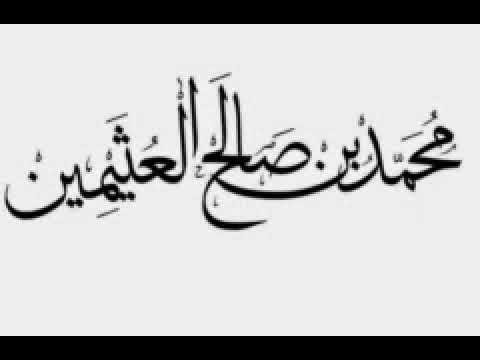 مُحَمَّد بْن صَالِح الْعُثَيْمِين